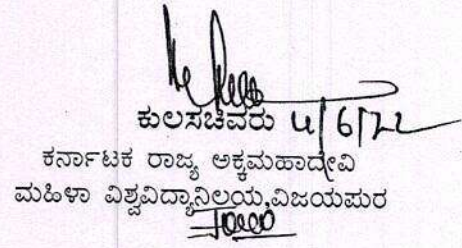 ಕುಲಸಚಿವರು 4/6/22
ಕರ್ನಾಟಕ ರಾಜ್ಯ ಅಕ್ಕಮಹಾದೇವಿ
ಮಹಿಳಾ ವಿಶ್ವವಿದ್ಯಾನಿಲಯ,ವಿಜಯಪುರ